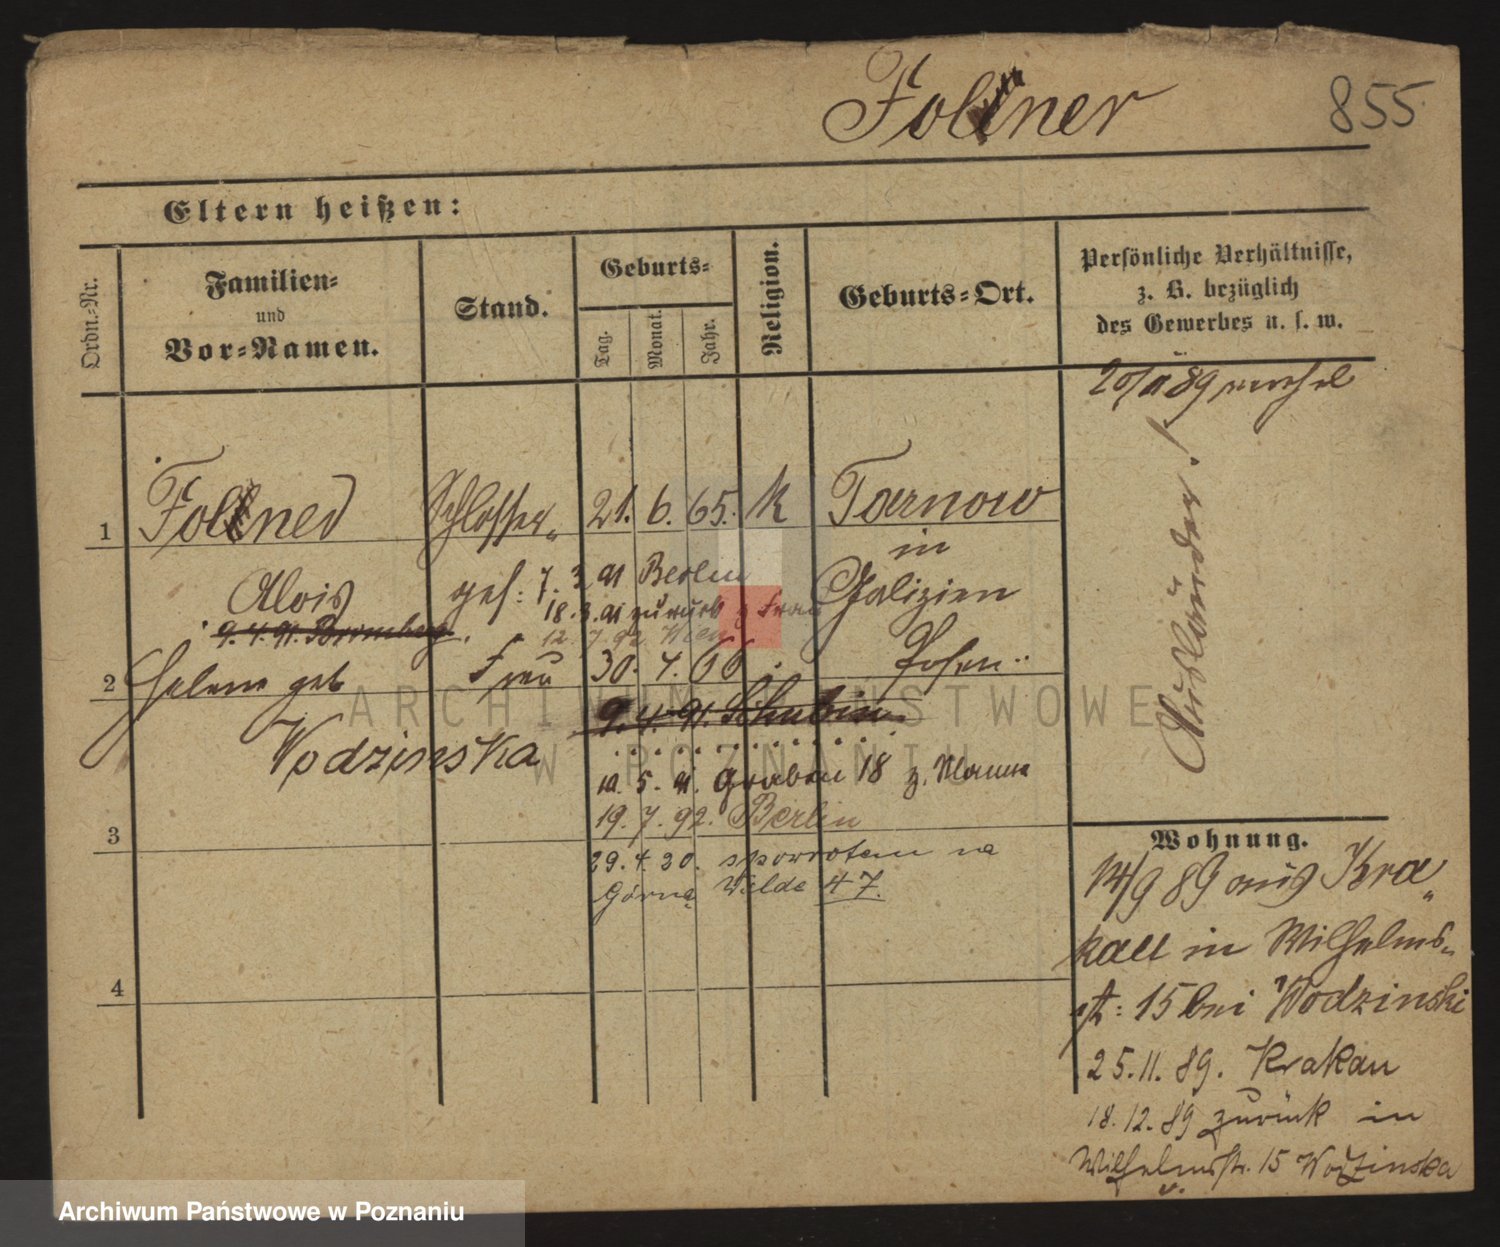 Follner 855
Eltern heißen:
Ordn.-Nr.
Familien-
und
Vor-Namen.
Stand.
Geburts-
Tag.
Monat.
Jahr.
Religion.
Geburts-Ort.
Persönliche Verhältnisse,
z. B. bezüglich
des Gewerbes u. s. w.
Ausländer!
1 Schlosser 21. 6. 65. k Tarnow
in
Alois gest: 7. 3. 91 Berlin Galizien
18.3.91 zurück z Frau
9.4.91. Bromberg.
12.7.92 Wien
2 Helene geb Frau 30. 4. 66 Posen
9.4.91. Schubin
Wodzinska
10. 5. 91. Graben 18 z. Manne
19. 7. 92. Berlin
3
29. 4. 30. spowrotem na
Górną Wilde 47.
4
Wohnung.
14/9 89 aus Kra„
kau in Wilhelms„
st: 15 bei Wodzinski
25.11.89. Krakau
18.12.89 zurück in
Wilhelmstr. 15 Wodzinska
ARCHIWUM PAŃSTWOWE
W POZNANIU
Archiwum Państwowe w Poznaniu